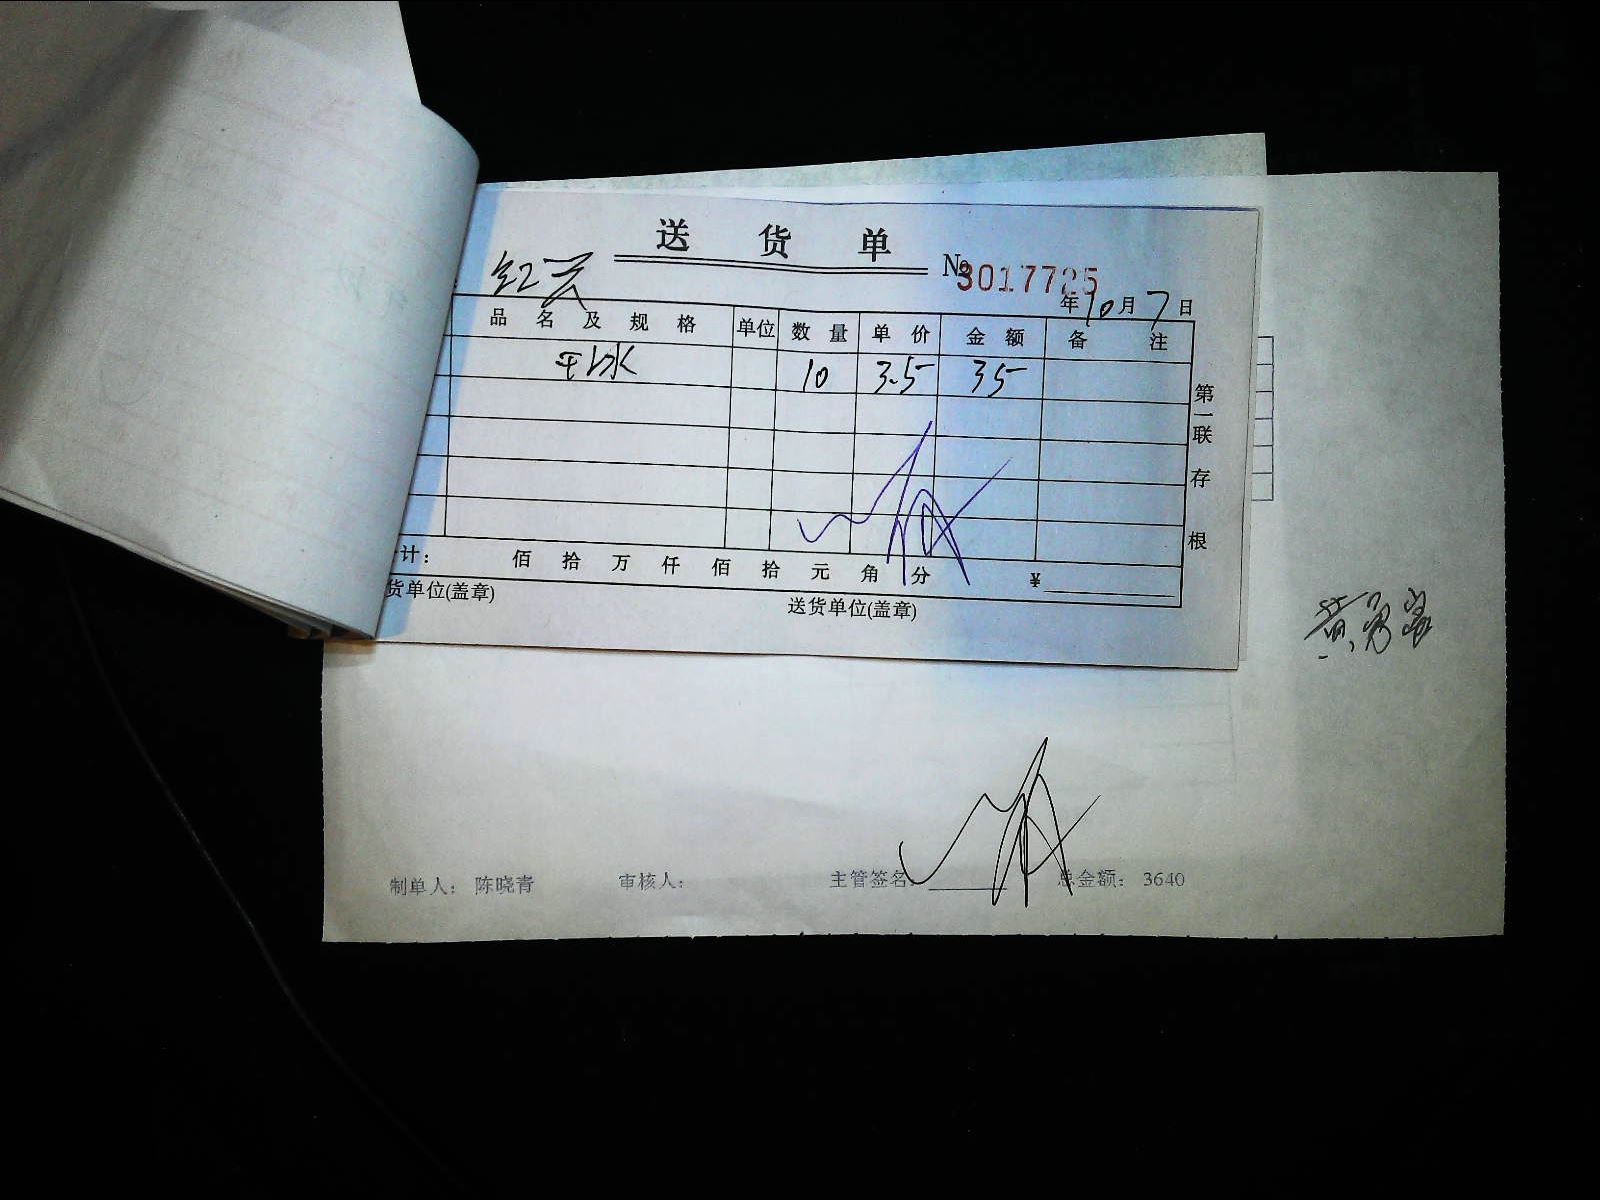 送 货 单
红兴 № 3017725
年10月7日
品 名 及 规 格 单位 数 量 单 价 金 额 备 注
冰 10 3.5 35
第一联 存 根
计： 佰 拾 万 仟 佰 拾 元 角 分 ¥
货单位(盖章) 送货单位(盖章)
制单人： 陈晓青 审核人： 主管签名： 总金额： 3640